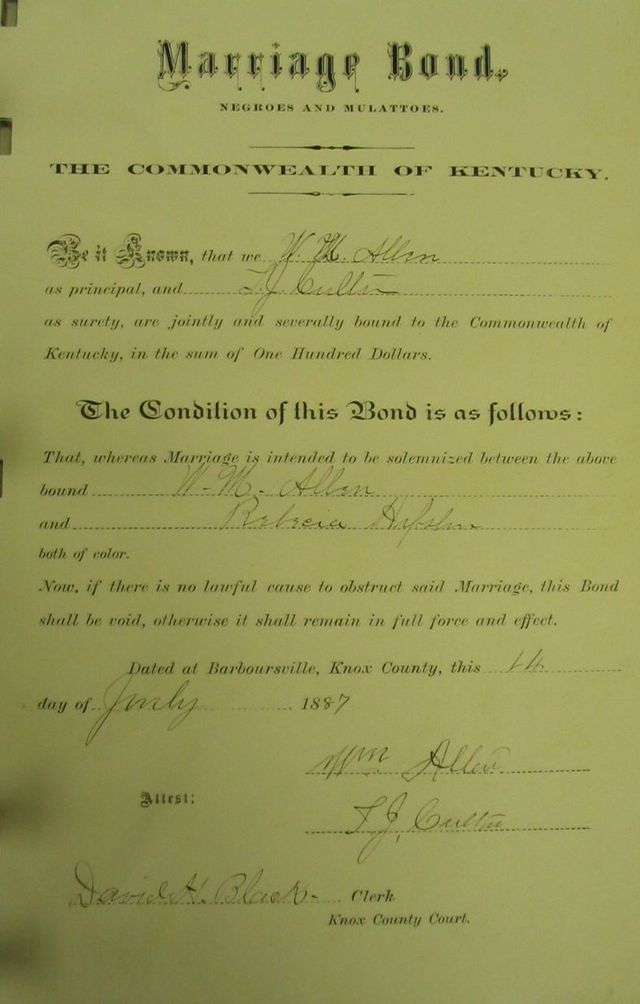 Marriage Bond.
NEGROES AND MULATTOES.
THE COMMONWEALTH OF KENTUCKY.
Be it Known, that we W. M. Allen
as principal, and T. J.
as surety, are jointly and severally bound to the Commonwealth of
Kentucky, in the sum of One Hundred Dollars.
The Condition of this Bond is as follows:
That, whereas Marriage is intended to be solemnized between the above
bound W. M. Allen
and
both of color.
Now, if there is no lawful cause to obstruct said Marriage, this Bond
shall be void, otherwise it shall remain in full force and effect.
Dated at Barboursville, Knox County, this 14
day of July 1887
Wm Allen
Attest:
T J,
David H. Black Clerk
Knox County Court.